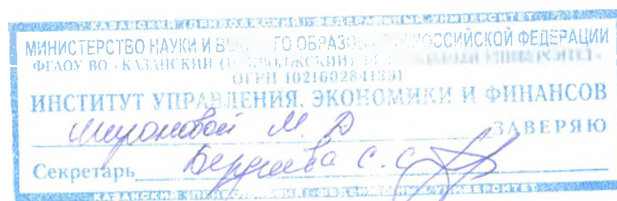 КАЗАНСКИЙ (ПРИВОЛЖСКИЙ) ФЕДЕРАЛЬНЫЙ УНИВЕРСИТЕТ
МИНИСТЕРСТВО НАУКИ И В ГО ОБРАЗО РОССИЙСКОЙ ФЕДЕРАЦИИ
ФГАОУ ВО - КАЗАНСКИЙ (П ВОЛЖСКИЙ) УНИВЕРСИТЕТ -
ОГРН 1021602841391
ИНСТИТУТ УПРАВЛЕНИЯ, ЭКОНОМИКИ И ФИНАНСОВ
Мироновой М. Д ЗАВЕРЯЮ
Секретарь С. С
КАЗАНСКИЙ (ПРИВОЛЖСКИЙ) ФЕДЕРАЛЬНЫЙ УНИВЕРСИТЕТ